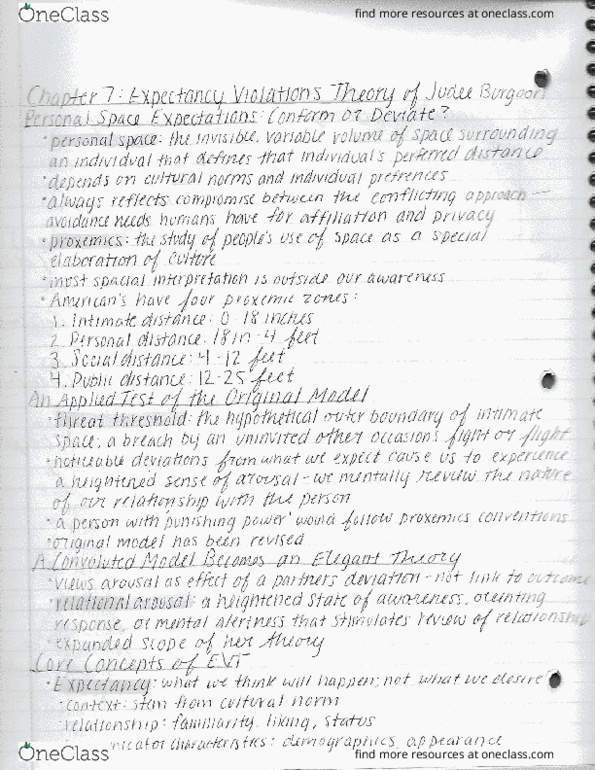 OneClass find more resources at oneclass.com
Chapter 7: Expectancy Violations Theory of Judee Burgoon
Personal Space Expectations: Conform or Deviate?
• personal space: the invisible, variable volume of space surrounding
an individual that defines that individual's perferred distance
• depends on cultural norms and individual prefrences
• always reflects compromise between the conflicting approach -
avoidance needs humans have for affiliation and privacy
• proxemics: the study of people's use of space as a special
elaboration of culture
• most spacial interpretation is outside our awareness
• American's have four proxemic zones:
1. Intimate distance: 0-18 inches
2. Personal distance: 18 in - 4 feet
3. Social distance: 4-12 feet
4. Public distance: 12-25 feet
An Applied Test of the Original Model
• threat threshold: the hypothetical outer boundary of intimate
space; a breach by an uninvited other occasions fight or flight
• noticeable deviations from what we expect cause us to experience
a heightened sense of arousal - we mentally review the nature
of our relationship with the person
• a person with "punishing power" would follow proxemics conventions
• original model has been revised
A Convoluted Model Becomes an Elegant Theory
• views arousal as effect of a partners deviation - not link to outcome
• relational arousal: a heightened state of awareness, orienting
response, or mental alertness that stimulates review of relationship
• expanded scope of her theory
Core Concepts of EVT
• Expectancy: what we think will happen; not what we desire
• context: stem from cultural norm
relationship: familiarity, liking, status
nicator characteristics: demographics, appearance
OneClass find more resources at oneclass.com